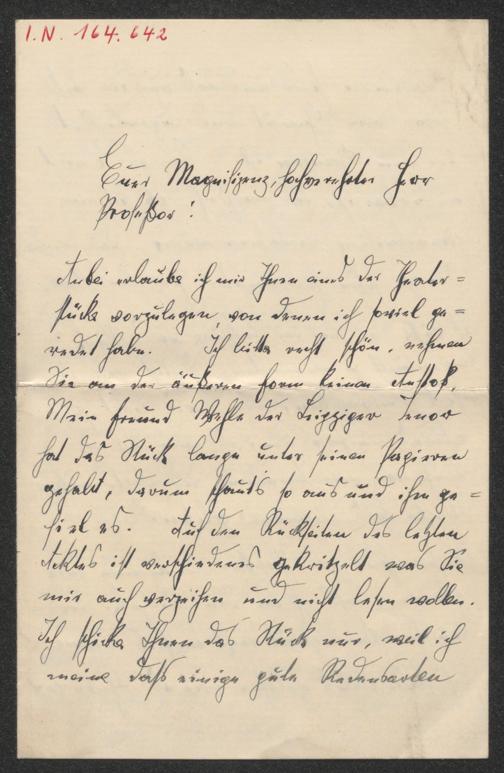 I.N. 164.642
Euer Magnifizenz, hochverehrter Herr
Profeßor!
Anbei erlaube ich mir Ihnen eines der Theater=
stücke vorzulegen, von denen ich soviel ge=
redet habe. Ich bitte recht schön, nehmen
Sie an der äußeren Form keinen Anstoß.
Mein Freund Wehle der Leipziger Tenor
hat das Stück lange unter seinen Papieren
gehabt, darum schaut's so aus und ihm ge=
fiel es. Auf den Rückseiten des letzten
Aktes ist verschiedenes gekritzelt was Sie
mir auch verzeihen und nicht lesen wollen.
Ich schicke Ihnen das Stück nur, weil ich
meine daß einige gute Redensarten